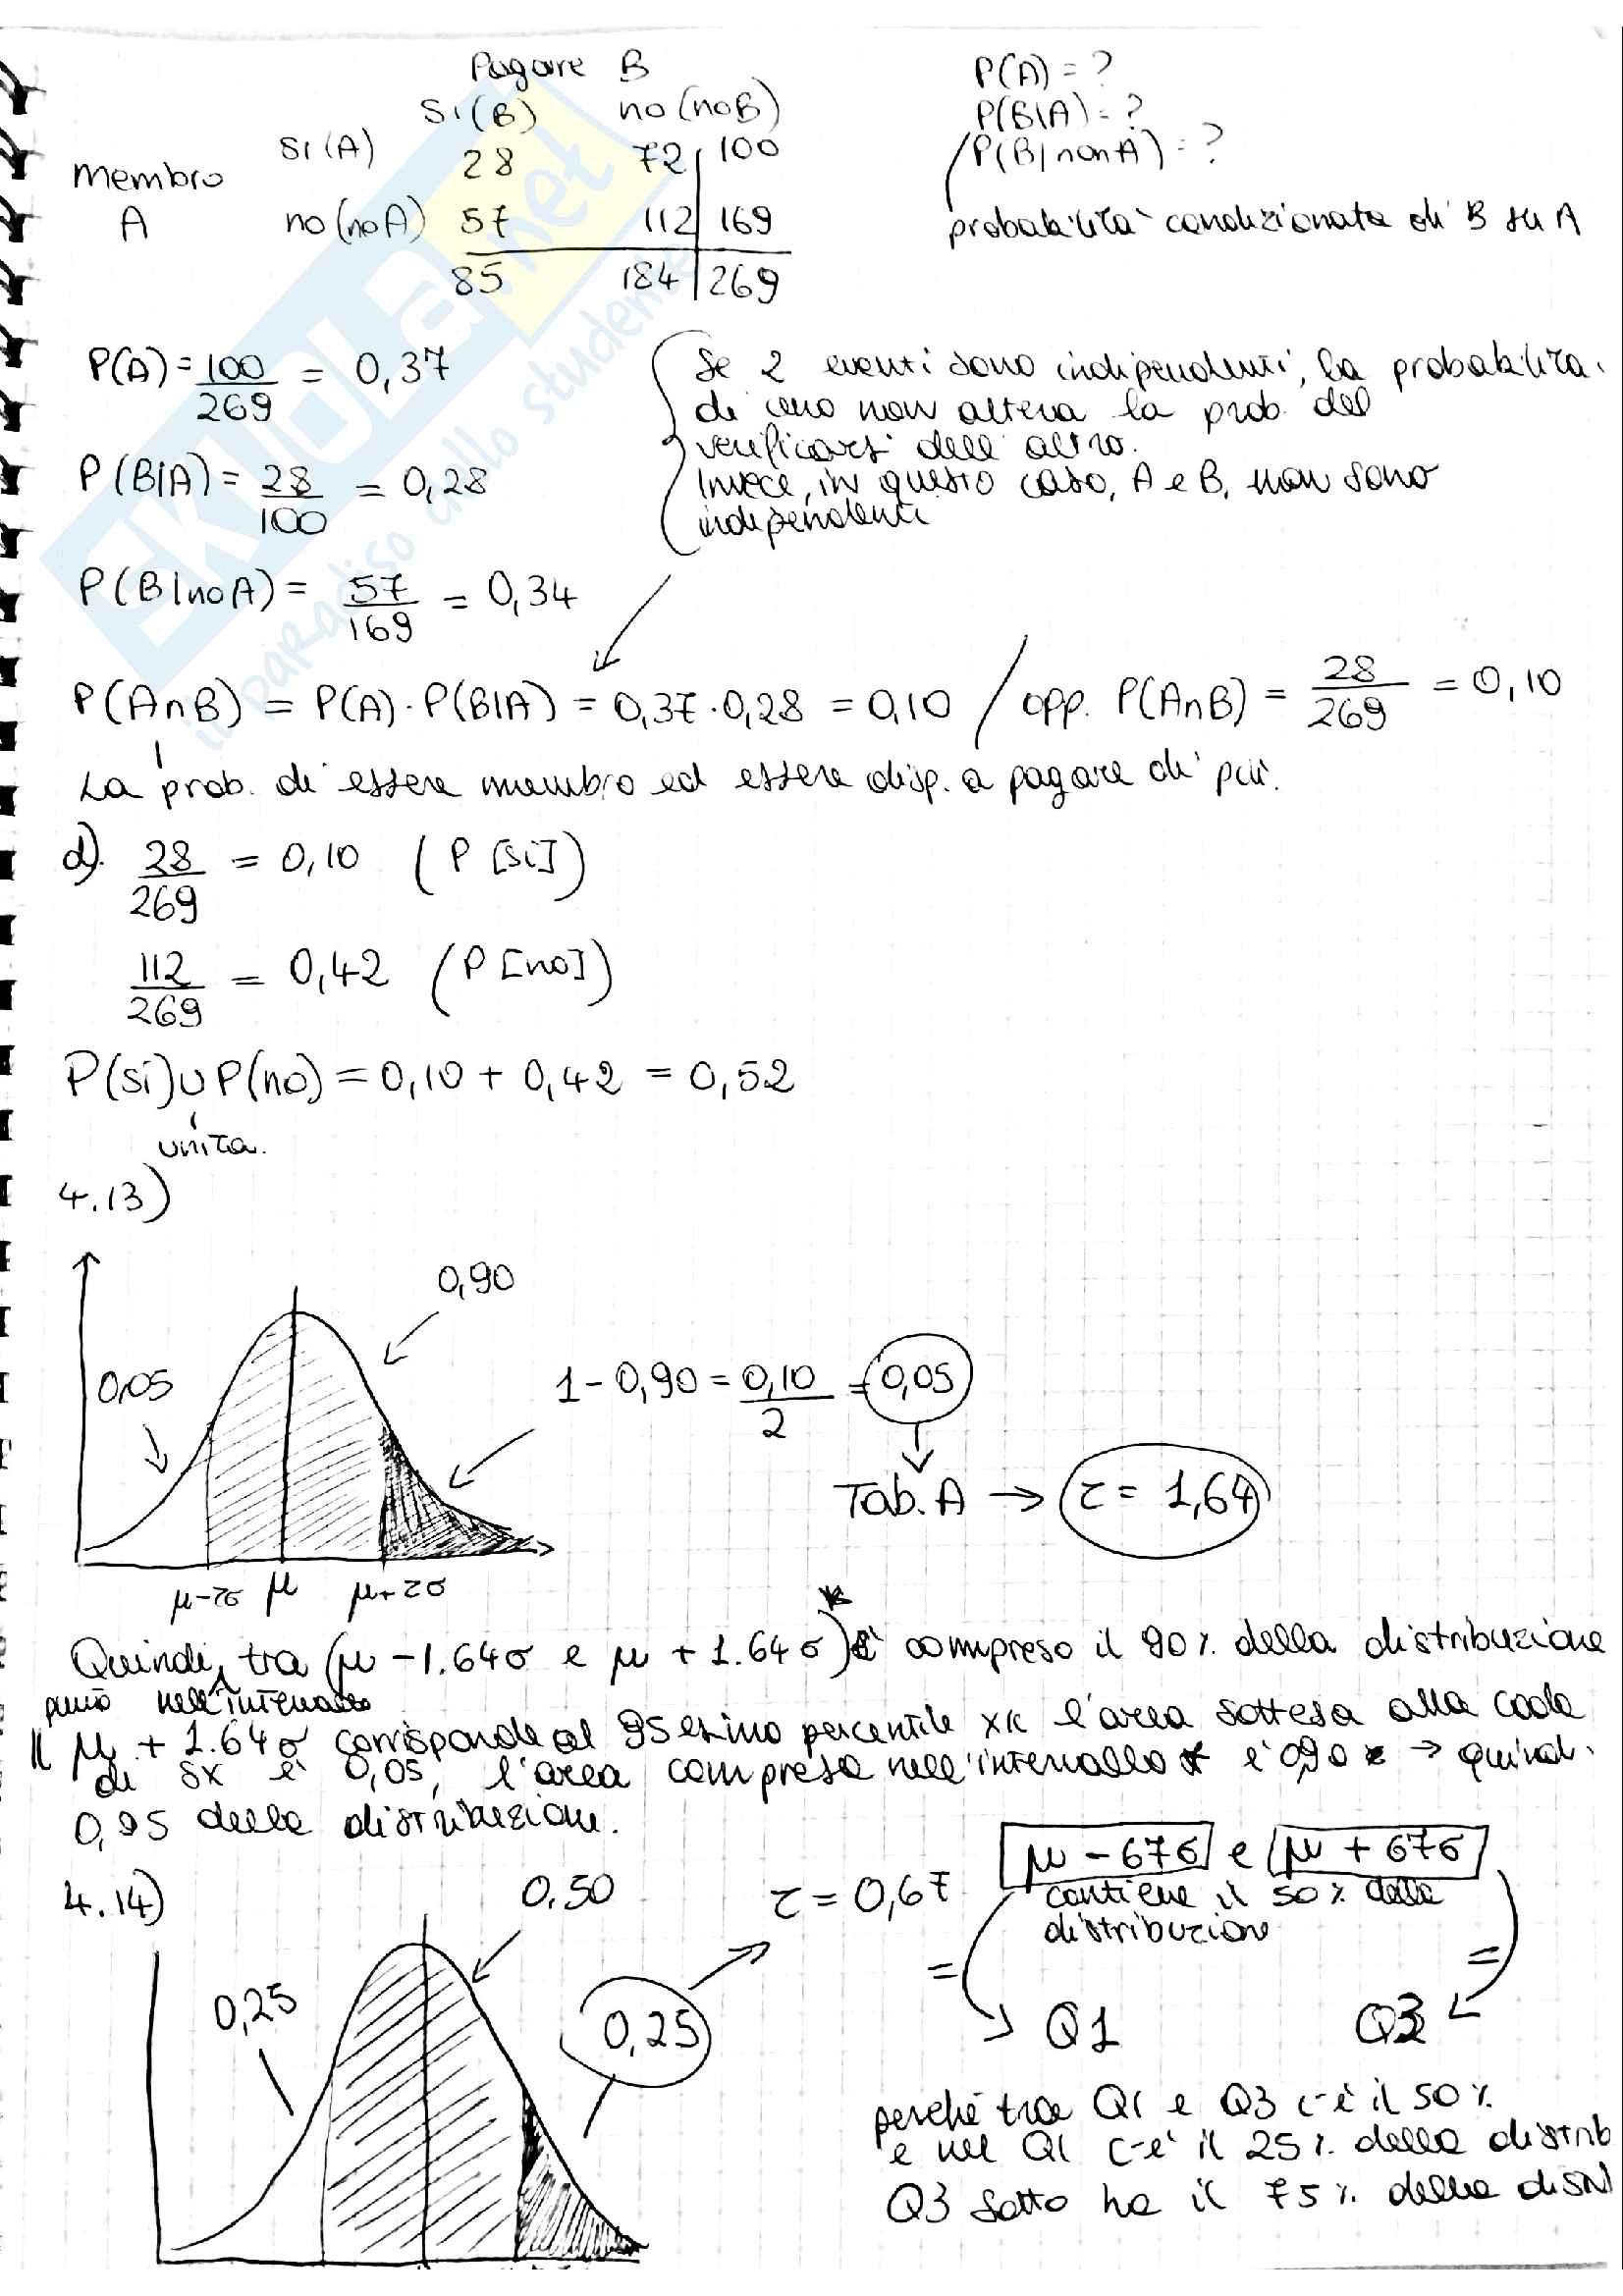 Pagare B
Si(B) no(noB)
membro
A
si(A) 28 72 100
no(noA) 57 112 169
85 184 269
P(A)=?
P(B|A)=?
P(B|nonA)=?
probabilità condizionata di B su A
P(A)=100/269 = 0,37
P(B|A)=28/100 = 0,28
P(B|noA)=57/169 = 0,34
Se 2 eventi sono indipendenti, la probabilità
di uno non altera la prob. del
verificarsi dell'altro.
Invece, in questo caso, A e B, non sono
indipendenti
P(A∩B) = P(A)·P(B|A) = 0,37·0,28 = 0,10 / opp. P(A∩B) = 28/269 = 0,10
La prob. di essere membro ed essere disp. a pagare di più.
d). 28/269 = 0,10 (P[si])
112/269 = 0,42 (P[no])
P(si)∪P(no) = 0,10 + 0,42 = 0,52
unità.
4.13)
0,90
0,05
1-0,90 = 0,10/2 = 0,05
Tab. A → z = 1,64
μ-zσ μ μ+zσ
Quindi, tra (μ-1.64σ e μ+1.64σ)* è compreso il 90% della distribuzione
nell'intervallo
Il μ + 1.64σ corrisponde al 95esimo percentile xk l'area sottesa alla coda
di sx è 0,05, l'area compresa nell'intervallo * è 0,90 → quindi
0,95 della distribuzione.
4.14)
0,50
0,25
0,25
z = 0,67
μ - 67σ e μ + 67σ
contiene il 50% della
distribuzione
= Q1
= Q3
perché tra Q1 e Q3 c'è il 50%
e nel Q1 c'è il 25% della distrib
Q3 sotto ha il 75% della distri
SKUOLA.net
il paradiso dello studente